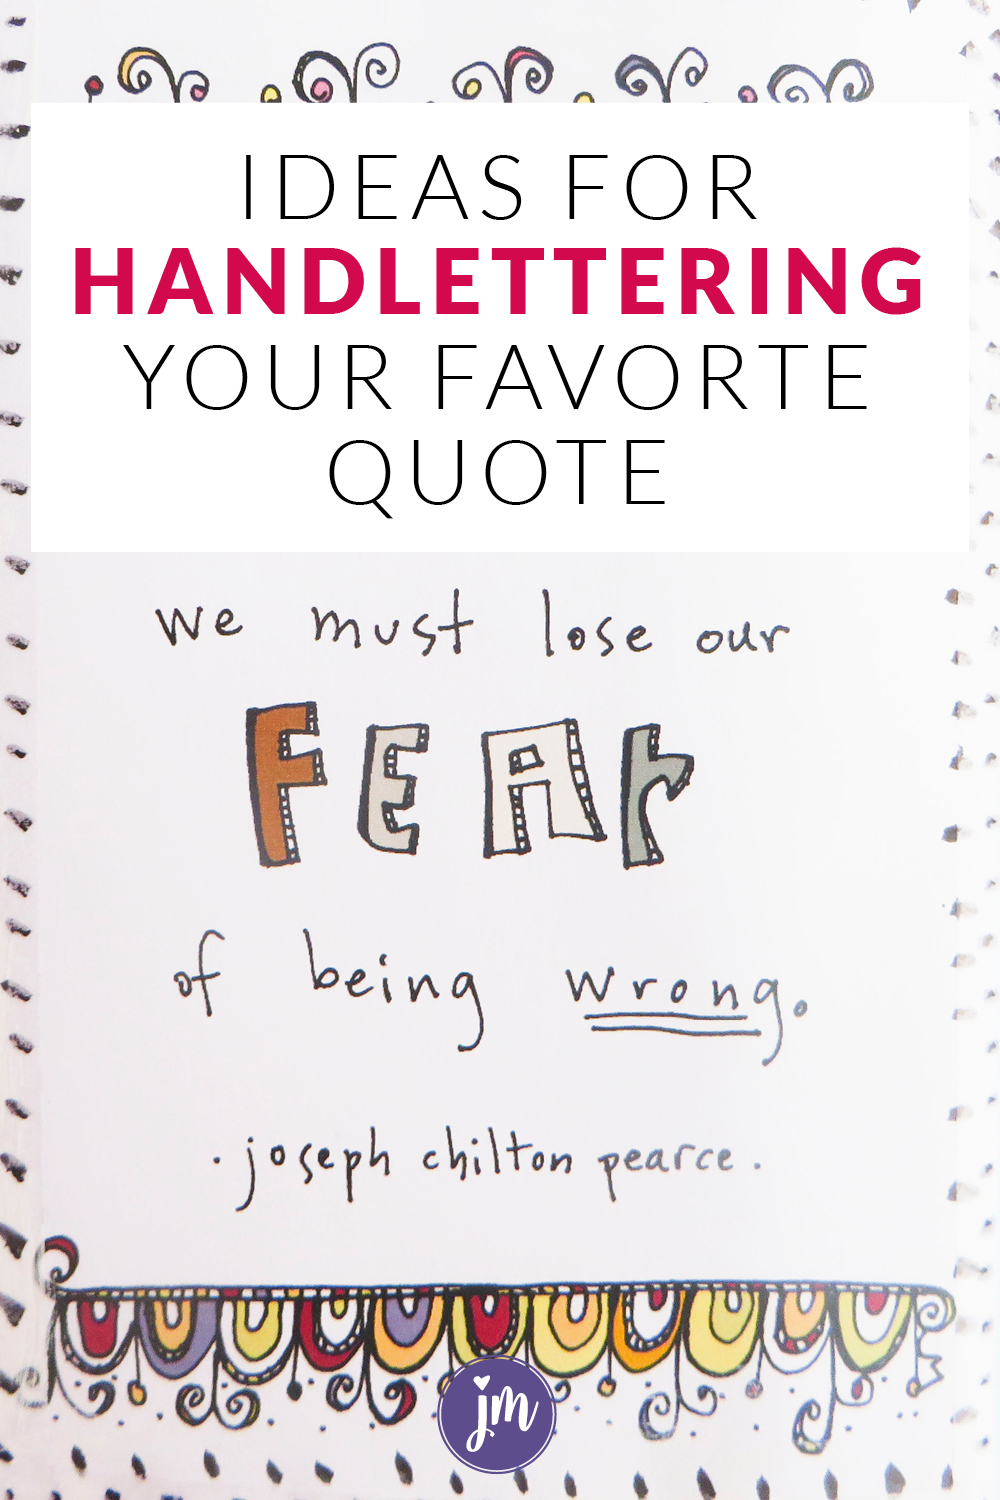 IDEAS FOR
HANDLETTERING
YOUR FAVORTE
QUOTE
we must lose our
FEAr
of being wrong.
. joseph chilton pearce .
jm